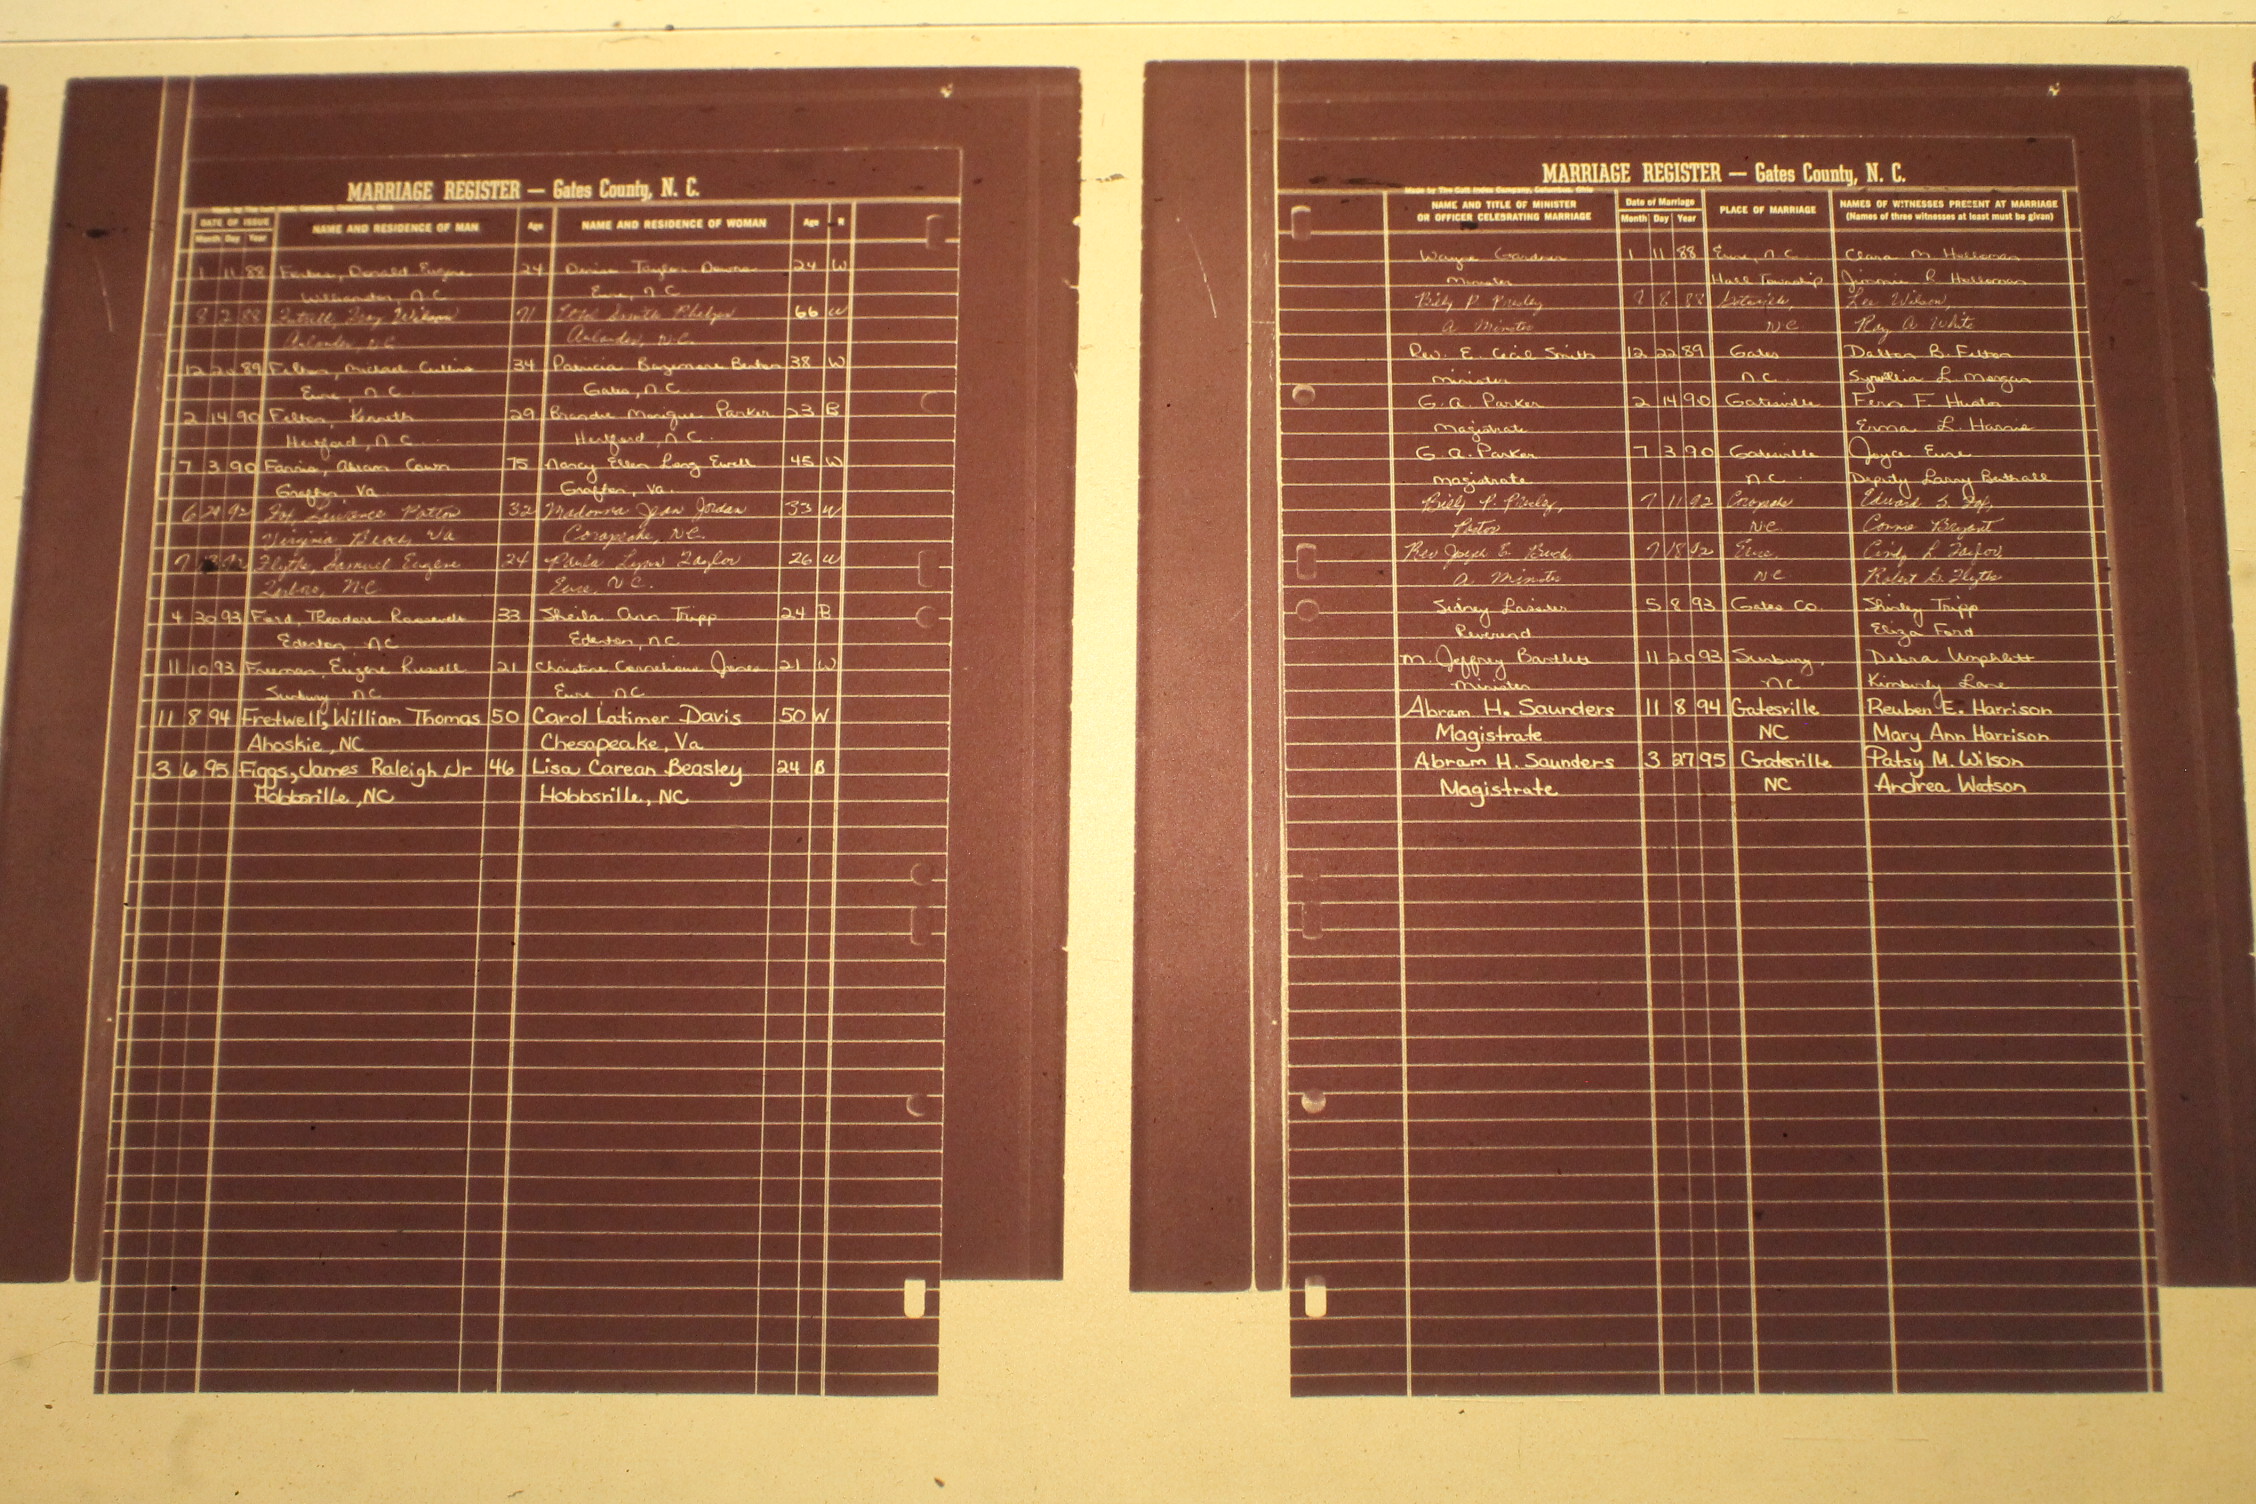 MARRIAGE REGISTER — Gates County, N. C.
DATE OF ISSUE
Month Day Year
NAME AND RESIDENCE OF MAN
Age
NAME AND RESIDENCE OF WOMAN
Age
R
1 11 88 Forbes, Donald Eugene 24 Denise Taylor Downs 24 W
Williamston, N.C. Eure, N.C.
8 2 88 Wilson 71 Ethel Smith Phelps 66 W
Aulander, NC Aulander, N.C.
12 20 89 Felton, Michael Cullins 34 Patricia Bazemore Benton 38 W
Eure, N.C. Gates, N.C.
2 14 90 Felton, Kenneth 29 Brandie Monique Parker 23 B
Hertford, N.C. Hertford, N.C.
7 3 90 Farris, Abram Cown 75 Nancy Ellen Long Ewell 45 W
Grafton, Va. Grafton, Va.
6 29 92 Fox, Lawrence Patton 32 Madonna Jean Jordan 33 W
Virginia Beach, Va Corapeake, N.C.
7 92 Flythe, Samuel Eugene 24 Paula Lynn Taylor 26 W
N.C. Eure, N.C.
4 30 93 Ford, Theodore Roosevelt 33 Sheila Ann Tripp 24 B
Edenton, NC Edenton, NC
11 10 93 Freeman, Eugene Russell 21 Christine Jones 21 W
Sunbury NC Eure, NC
11 8 94 Fretwell, William Thomas 50 Carol Latimer Davis 50 W
Ahoskie, NC Chesapeake, Va
3 6 95 Figgs, James Raleigh Jr 46 Lisa Carean Beasley 24 B
Hobbsville, NC Hobbsville, NC
MARRIAGE REGISTER — Gates County, N. C.
Made by The Gott Index Company, Columbus, Ohio
NAME AND TITLE OF MINISTER
OR OFFICER CELEBRATING MARRIAGE
Date of Marriage
Month Day Year
PLACE OF MARRIAGE
NAMES OF WITNESSES PRESENT AT MARRIAGE
(Names of three witnesses at least must be given)
Wayne Gardner 1 11 88 Eure, N.C. Clara M. Holloman
Minister Hall Township Jimmie R. Holloman
Billy P. Presley 8 8 88 Gatesville, Lee Wilson,
A Minister NC Ray A White
Rev. E. Cecil Smith 12 22 89 Gates Dalton B. Felton
Minister N.C. Synthia L. Morgan
G. A. Parker 2 14 90 Gatesville Fern F. Huston
Magistrate Erma L. Harris
G. A. Parker 7 3 90 Gatesville Joyce Eure
Magistrate N.C. Deputy Larry Buthall
Billy P. Presley, 7 11 92 Corapeake Edward S. Fox,
Pastor N.C. Connie Bryant
Rev Joseph E. Buck 7 18 92 Eure Cindy L.
A Minister NC Robert G. Flythe
Sidney Lassiter 5 8 93 Gates Co. Shirley Tripp
Reverend Eliza Ford
M. Jeffrey Bartlett 11 20 93 Sunbury, Debra Umphlett
Minister NC Kimberly Lane
Abram H. Saunders 11 8 94 Gatesville Reuben E. Harrison
Magistrate NC Mary Ann Harrison
Abram H. Saunders 3 27 95 Gatesville Patsy M. Wilson
Magistrate NC Andrea Watson